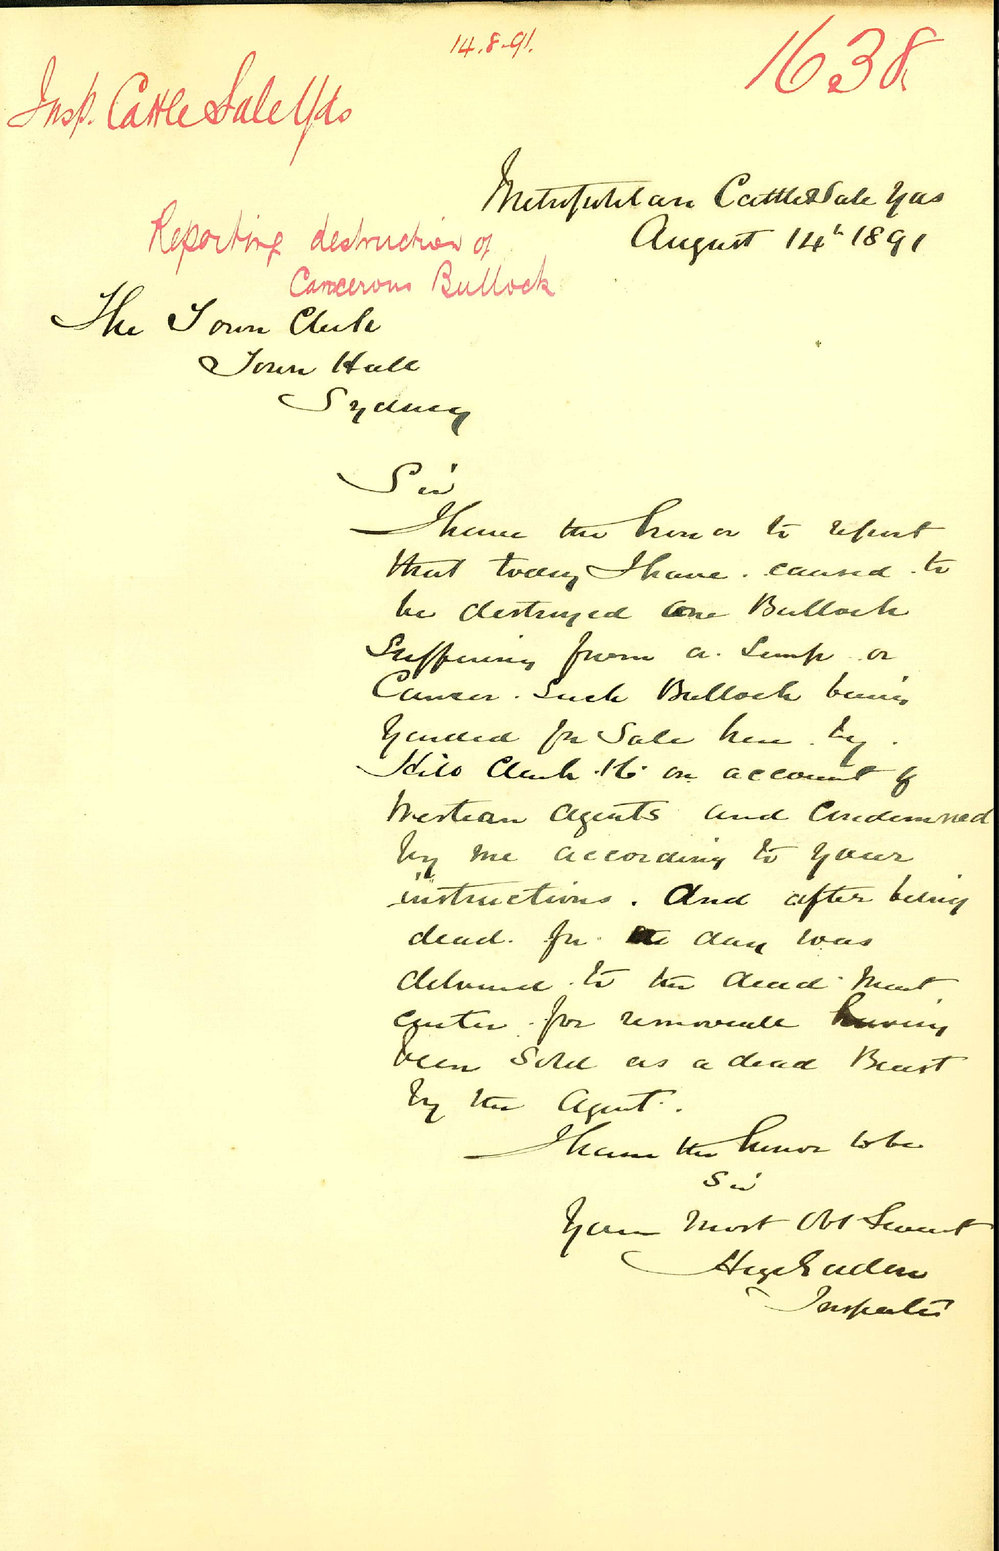 14.8.91.
1638
Insp. Cattle Sale Yds
Metropolitan Cattle Sale Yds
August 14th 1891
Reporting destruction of
Cancerous Bullock
The Town Clerk
Town Hall
Sydney
Sir
I have the honor to report
that today I have caused to
be destroyed one Bullock
Suffering from a Lump or
Cancer. Such Bullock being
yarded for Sale here by
Clark on account of
Western Agents and Condemned
by me according to your
instructions. And after being
dead for the day was
delivered to the dead Meat
for removeall having
been Sold as a dead Beast
by the Agent.
I have the honor to be
Sir
Your Most Obt Servant
Inspector